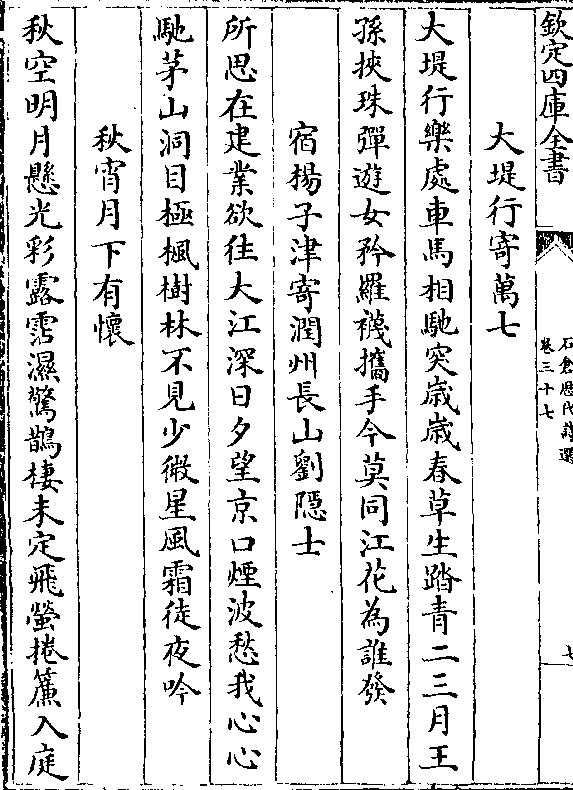 欽定四庫全書
石倉歴代詩選
卷三十七
七
大堤行寄萬七
大堤行樂處車馬相馳突歲歲春草生踏青二三月王
孫挾珠彈遊女矜羅襪攜手今莫同江花為誰發
宿揚子津寄潤州長山劉隱士
所思在建業欲往大江深日夕望京口煙波愁我心心
馳茅山洞目極楓樹林不見少微星風霜徒夜吟
秋宵月下有懷
秋空明月懸光彩露霑濕驚鵲棲未定飛螢捲簾入庭